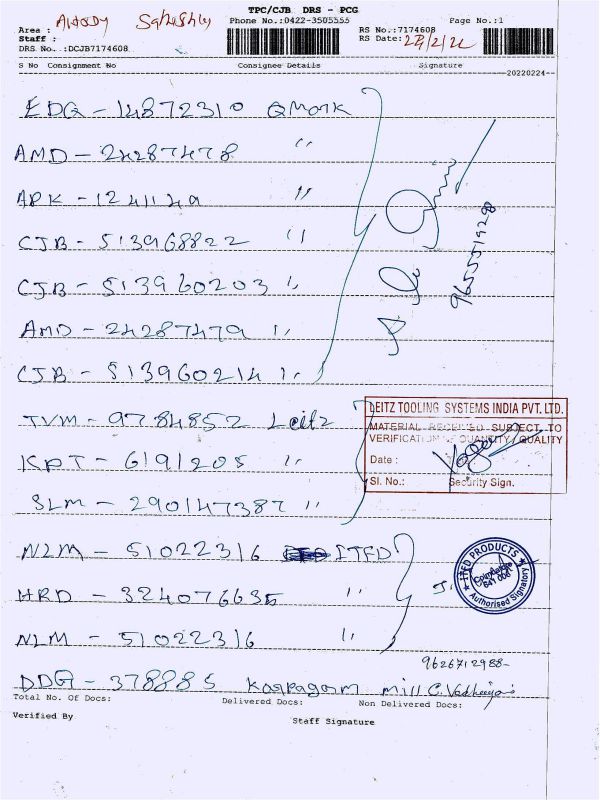 TPC/CJB DRS - PCG
Phone No.:0422-3505555 Page No.:1
Area :
Staff :
DRS No..:DCJB7174608
RS No.:7174608
RS Date:
S No Consignment No Consignee Details Signature
20220224
EDG - 14872310 QMark
AMD - 24287478 "
APK - 1241149 "
CJB - 513968822 "
CJB - 513960203 "
AMD - 24287479 "
CJB - 513960214 "
9655519298
TVM - 9784852 Leitz
KPT - 6191205 "
SLM - 290147387 "
LEITZ TOOLING SYSTEMS INDIA PVT. LTD.
MATERIAL RECEIVED SUBJECT TO
VERIFICATION OF QUANTITY / QUALITY
Date :
Sl. No.: Security Sign.
NLM - 51022316 ITFD
HRD - 324076635 "
NLM - 51022316 "
ITFD PRODUCTS
Coimbatore
641 006
Authorised Signatory
9626712988-
DDG - 378885 Karpagam mill C.
Total No. Of Docs: Delivered Docs: Non Delivered Docs:
Verified By
Staff Signature